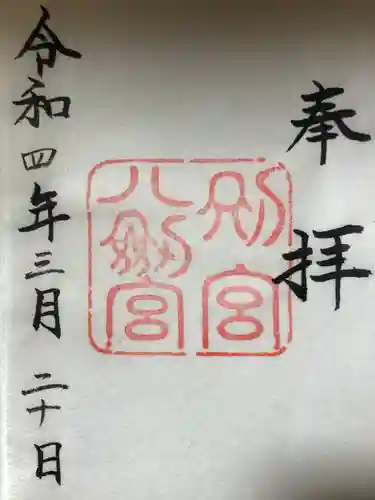 奉拝
別宮
八剣宮
令和四年三月二十日